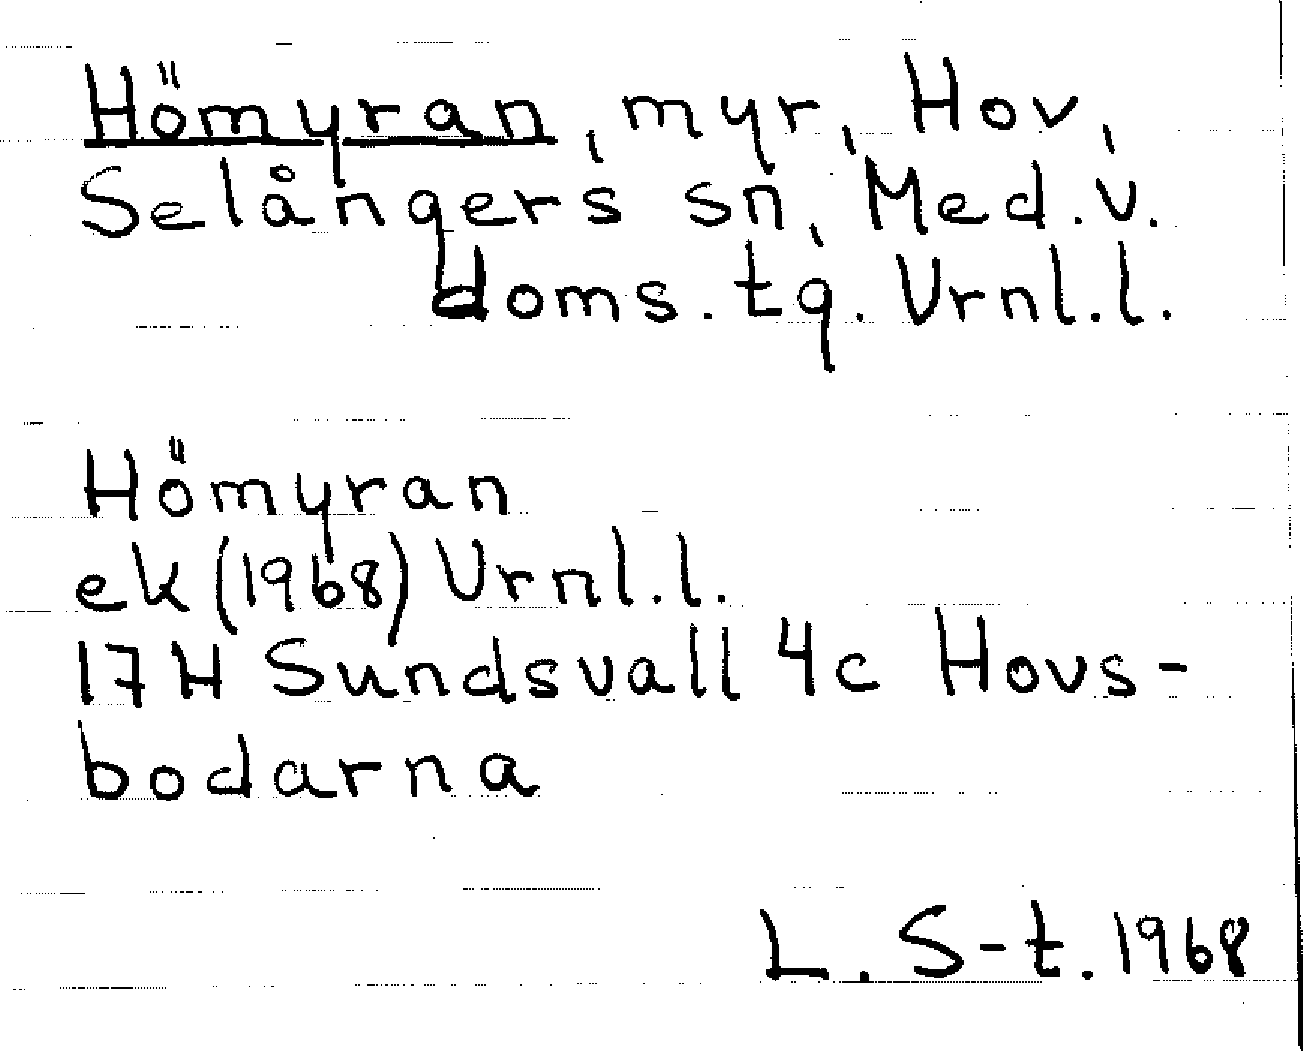 Hömyran, myr, Hov,
Selångers sn, Med.v.
doms. tg. Vrnl.l.
Hömyran
ek (1968) Vrnl.l.
17H Sundsvall 4c Hovs-
bodarna
L. S-t. 1968